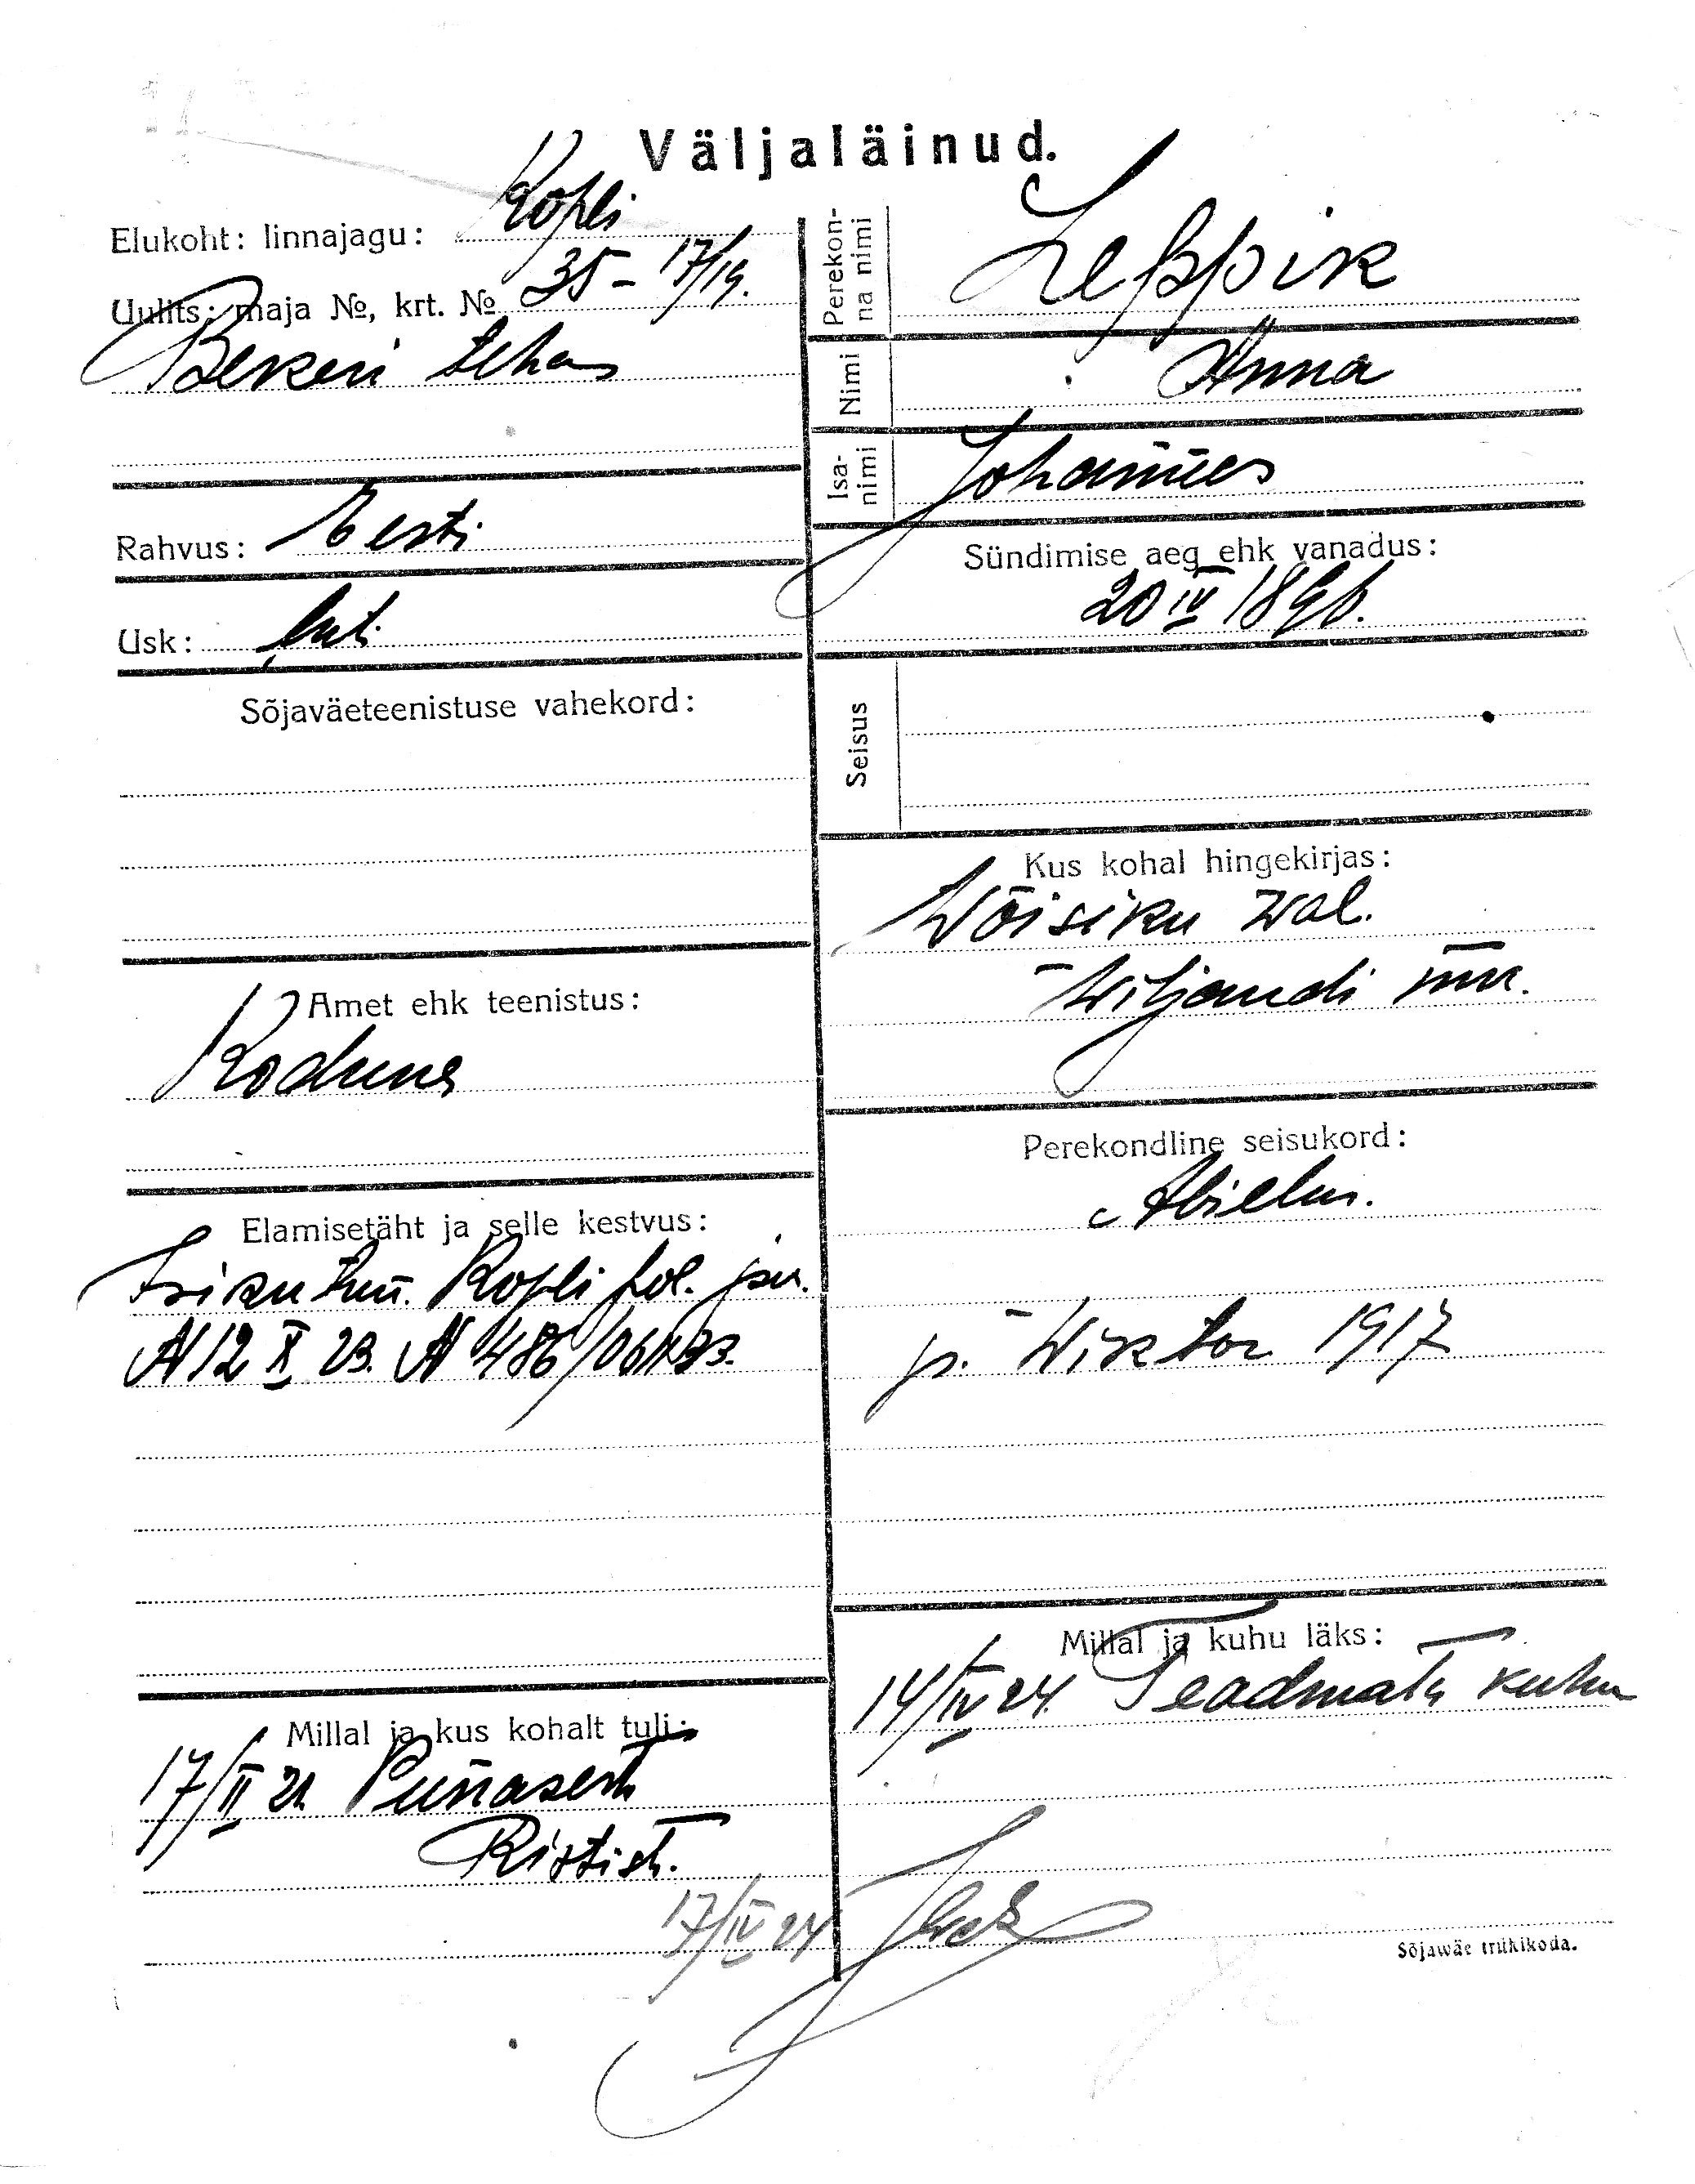 Väljaläinud.
Elukoht: linnajagu: Kopli
Uulits: maja №, krt. № 35 – 17/19.
Bekeri tehas
Rahvus: Eesti
Usk: Lut.
Sõjaväeteenistuse vahekord:
Amet ehk teenistus:
Kodune
Elamisetäht ja selle kestvus:
Isikutun. Kopli pol. jsk.
N 12 X 23. N 486/
Millal ja kus kohalt tuli:
17/II Punasest
Ristist.
17/IV 24
Perekonna nimi
Leppik
Nimi
Anna
Isanimi
Johannes
Sündimise aeg ehk vanadus:
20 IV 1896.
Seisus
Kus kohal hingekirjas:
Wõisiku wal.
Wiljandi mk.
Perekondline seisukord:
Abielus.
p. Wiktor 1917
Millal ja kuhu läks:
14/IV 24. Teadmata kuhu
Sõjawäe trükikoda.